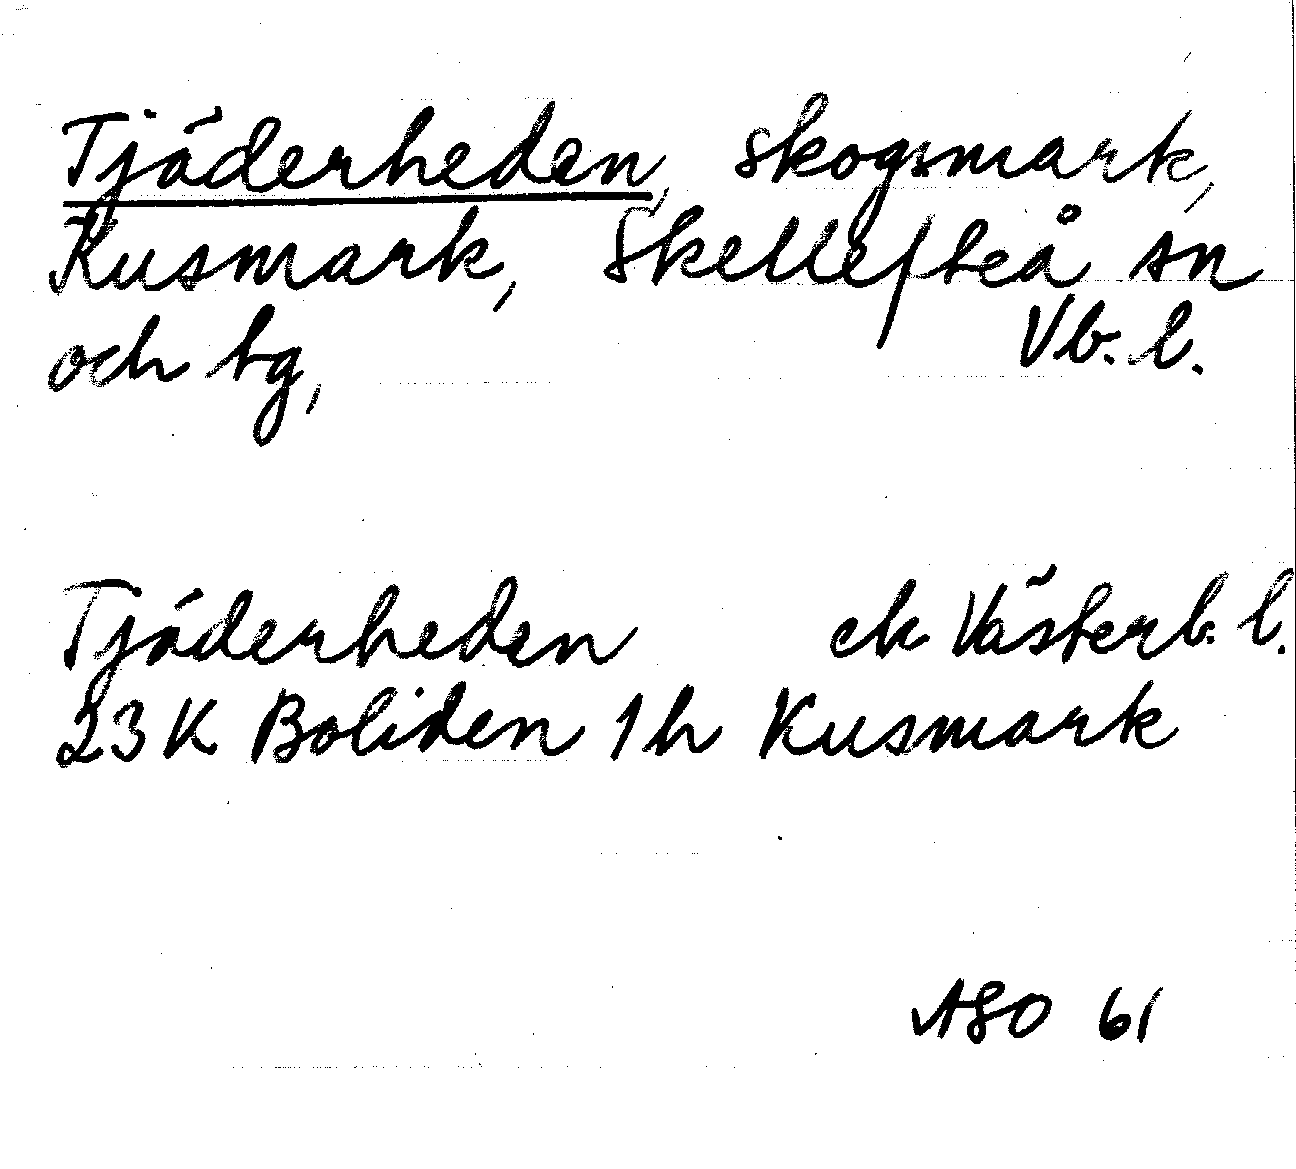 Tjäderheden, skogsmark,
Kusmark, Skellefteå sn
och tg, Vb. l.
Tjäderheden ek Västerb. l.
23 K Boliden 1 h Kusmark
ASO 61